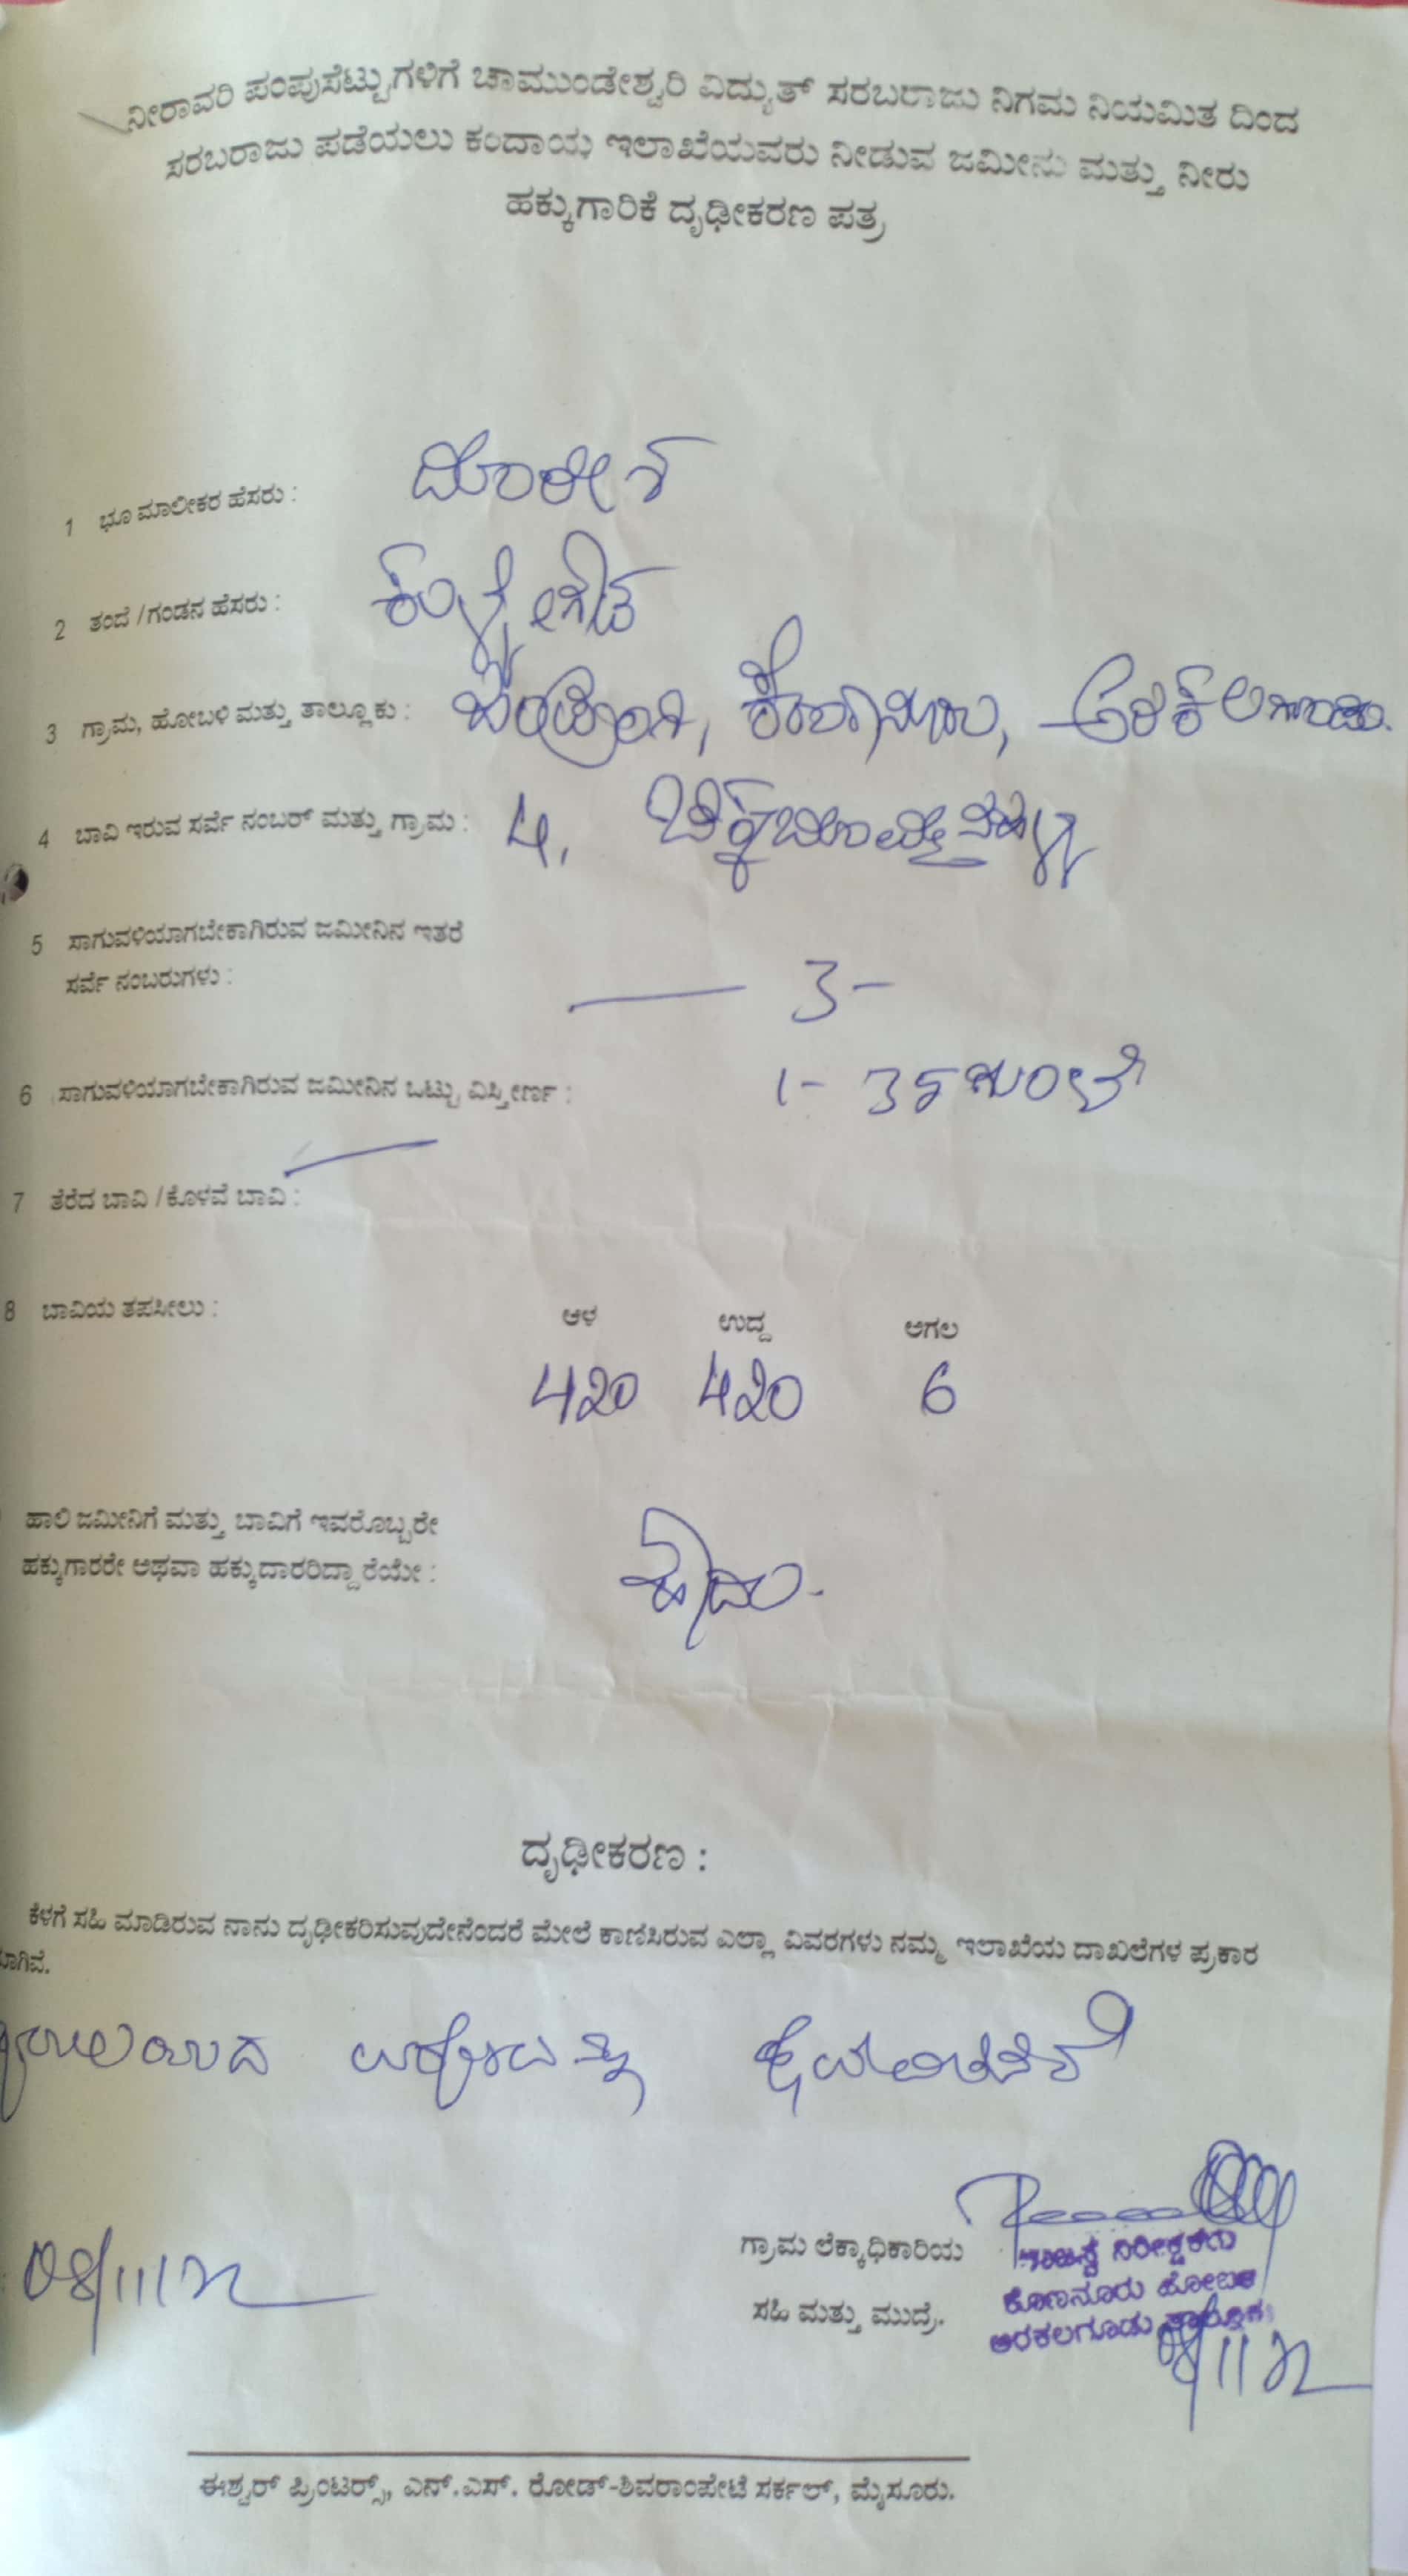 ನೀರಾವರಿ ಪಂಪುಸೆಟ್ಟುಗಳಿಗೆ ಚಾಮುಂಡೇಶ್ವರಿ ವಿದ್ಯುತ್ ಸರಬರಾಜು ನಿಗಮ ನಿಯಮಿತ ದಿಂದ
ಸರಬರಾಜು ಪಡೆಯಲು ಕಂದಾಯ ಇಲಾಖೆಯವರು ನೀಡುವ ಜಮೀನು ಮತ್ತು ನೀರು
ಹಕ್ಕುಗಾರಿಕೆ ದೃಢೀಕರಣ ಪತ್ರ
1 ಭೂ ಮಾಲೀಕರ ಹೆಸರು :
2 ತಂದೆ / ಗಂಡನ ಹೆಸರು :
3 ಗ್ರಾಮ, ಹೋಬಳಿ ಮತ್ತು ತಾಲ್ಲೂಕು : ಕೊಣನೂರು, ಅರಕಲಗೂಡು.
4 ಬಾವಿ ಇರುವ ಸರ್ವೆ ನಂಬರ್ ಮತ್ತು ಗ್ರಾಮ : 4,
5 ಸಾಗುವಳಿಯಾಗಬೇಕಾಗಿರುವ ಜಮೀನಿನ ಇತರೆ
ಸರ್ವೆ ನಂಬರುಗಳು : — 3 –
6 ಸಾಗುವಳಿಯಾಗಬೇಕಾಗಿರುವ ಜಮೀನಿನ ಒಟ್ಟು ವಿಸ್ತೀರ್ಣ : 1 - 35 ಗುಂಟೆ
7 ತೆರೆದ ಬಾವಿ / ಕೊಳವೆ ಬಾವಿ :
8 ಬಾವಿಯ ತಪಸೀಲು : ಆಳ ಉದ್ದ ಅಗಲ
420 420 6
ಹಾಲಿ ಜಮೀನಿಗೆ ಮತ್ತು ಬಾವಿಗೆ ಇವರೊಬ್ಬರೇ
ಹಕ್ಕುಗಾರರೇ ಅಥವಾ ಹಕ್ಕುದಾರರಿದ್ದಾರೆಯೇ : ಹೌದು.
ದೃಢೀಕರಣ :
ಕೆಳಗೆ ಸಹಿ ಮಾಡಿರುವ ನಾನು ದೃಢೀಕರಿಸುವುದೇನೆಂದರೆ ಮೇಲೆ ಕಾಣಿಸಿರುವ ಎಲ್ಲಾ ವಿವರಗಳು ನಮ್ಮ ಇಲಾಖೆಯ ದಾಖಲೆಗಳ ಪ್ರಕಾರ
08/11/22
ಗ್ರಾಮ ಲೆಕ್ಕಾಧಿಕಾರಿಯ
ಸಹಿ ಮತ್ತು ಮುದ್ರೆ.
ರಾಜಸ್ವ ನಿರೀಕ್ಷಕರು
ಕೊಣನೂರು ಹೋಬಳಿ
ಅರಕಲಗೂಡು ತಾಲ್ಲೂಕು
8/11/22
ಈಶ್ವರ್ ಪ್ರಿಂಟರ್ಸ್, ಎನ್.ಎಸ್. ರೋಡ್-ಶಿವರಾಂಪೇಟೆ ಸರ್ಕಲ್, ಮೈಸೂರು.